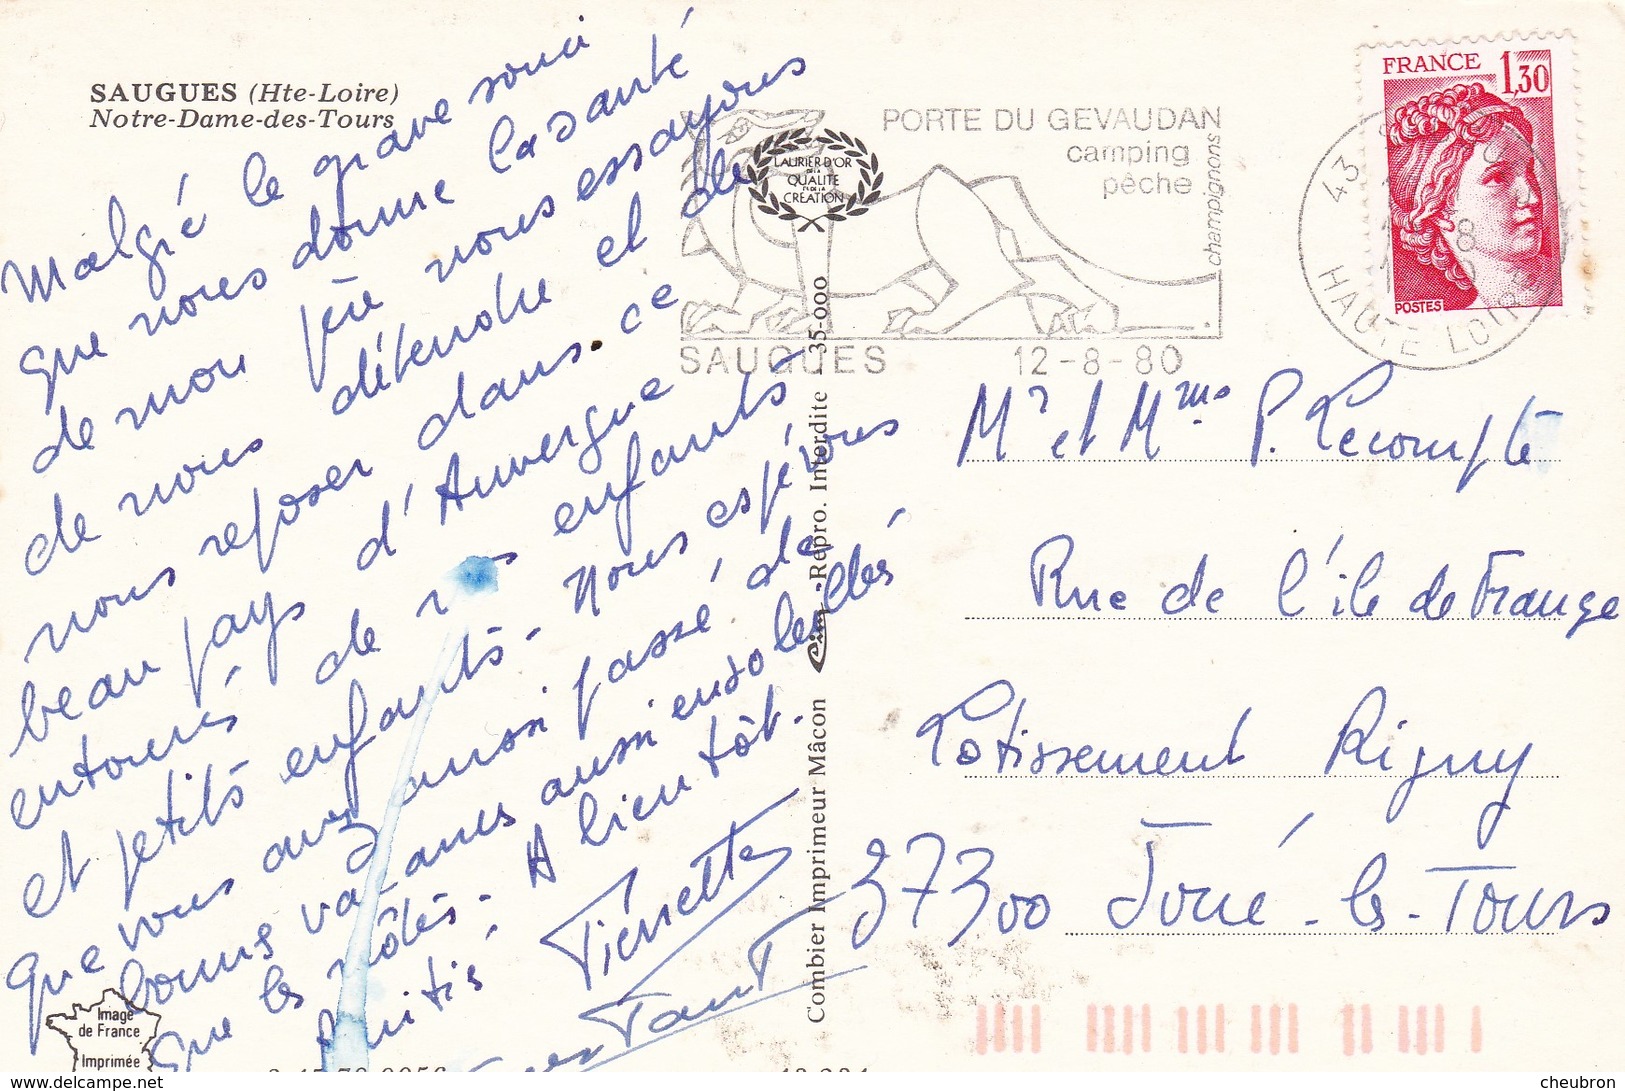 SAUGUES (Hte-Loire)
Notre-Dame-des-Tours
Malgré le grave souci
que nous donne la santé
de mon père nous essayons
de nous détendre et de
nous reposer dans ce
beau pays d'Auvergne
entourés de nos enfants
et petits enfants - Nous espérons
que vous avez aussi passé de
bonnes vacances aussi ensoleillés
que les nôtres. A bientôt.
Amitié
PORTE DU GEVAUDAN
camping
pêche
champignons
LAURIER D'OR
DE LA
QUALITE
ET DE LA
CREATION
SAUGUES 12-8-80
FRANCE 1,30
POSTES
43
HAUTE LOIRE
Mr et Mme P. Lecompte
Rue de l'île de France
Lotissement Rigny
37300 Joué-les-Tours
Combier Imprimeur Mâcon Cim - Repro. Interdite 35-000
Image
de France
Imprimée
cheubron@delcampe.net